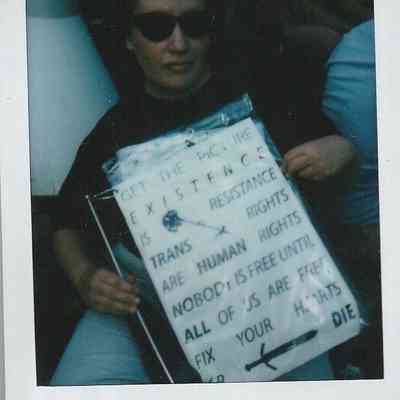 GET THE PICTURE
EXISTENCE
IS RESISTANCE
TRANS RIGHTS
ARE HUMAN RIGHTS
NOBODY IS FREE UNTIL
ALL OF US ARE FREE
FIX YOUR HEARTS
DIE